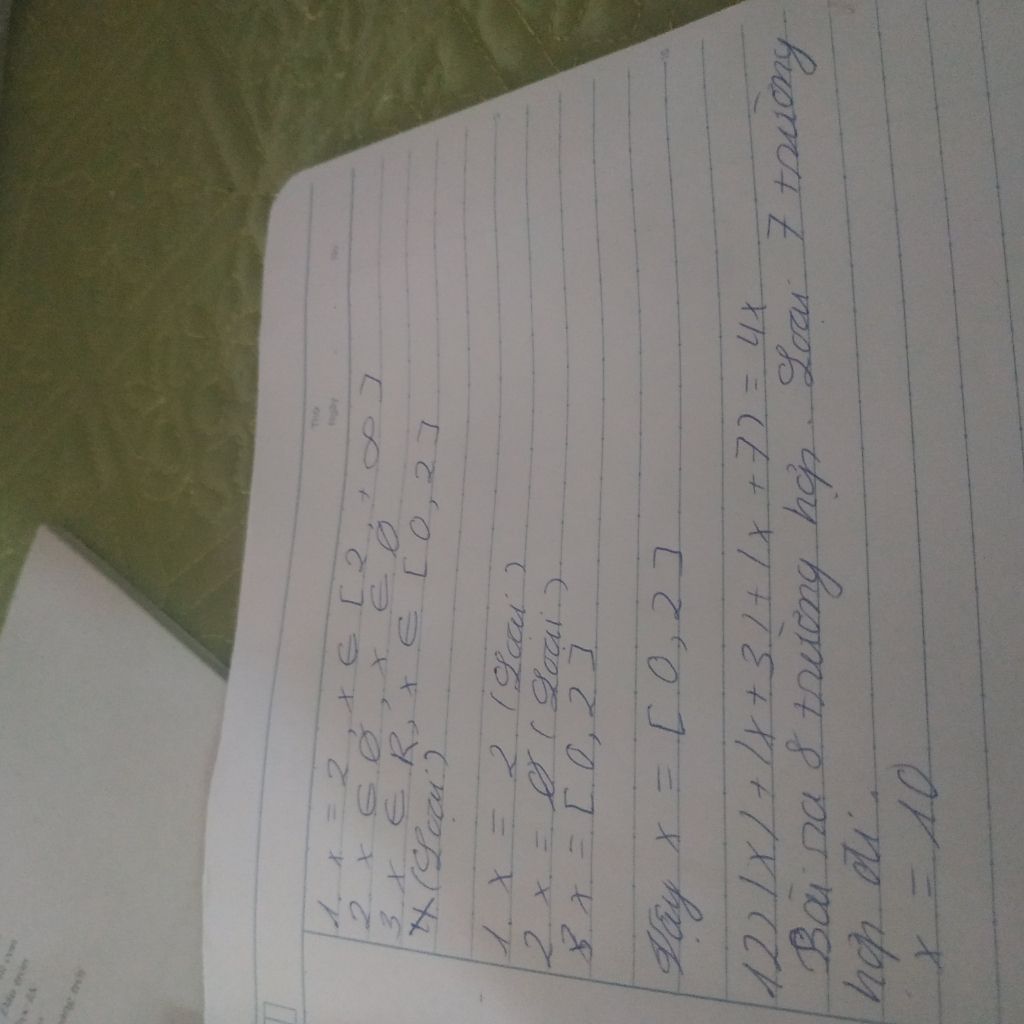 1 x = 2, x ∈ [2, +∞]
2 x ∈ Ø, x ∈ Ø
3 x ∈ R, x ∈ [0, 2]
4 (Loại)
1 x = 2 (Loại)
2 x = Ø (Loại)
3 x = [0, 2]
Vậy x = [0, 2]
12) |x| + |x + 3| + |x + 7| = 4x
Bài ra 8 trường hợp. Loại 7 trường
hợp đi.
x = 10